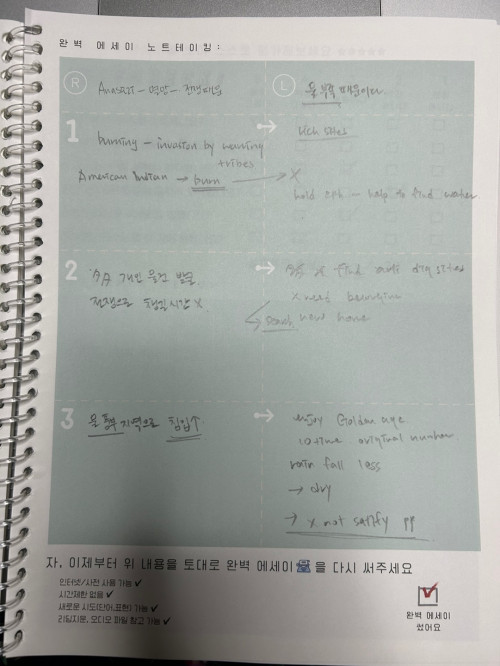 완벽 에세이 노트테이킹:
R Anasazi – 멸망 – 전쟁때문
L 물 부족 때문이다.
1 burning – invasion by warring tribes
American Indian → burn → X
↔ rich sites
hold rph – help to find water
2 개인 물건 발굴
전쟁으로 챙길시간 X
↔ find dig sites
x need
→ search new home
3 물 풍부 지역으로 침입↑
↔ enjoy Golden age
10 time original number
rain fall less
→ dry
→ x not satisfy pp
자. 이제부터 위 내용을 토대로 완벽 에세이를 다시 써주세요
인터넷/사전 사용 가능 ✓
시간제한 없음 ✓
새로운 시도(단어,표현) 가능 ✓
리딩지문, 오디오 파일 참고 가능 ✓
완벽 에세이
썼어요